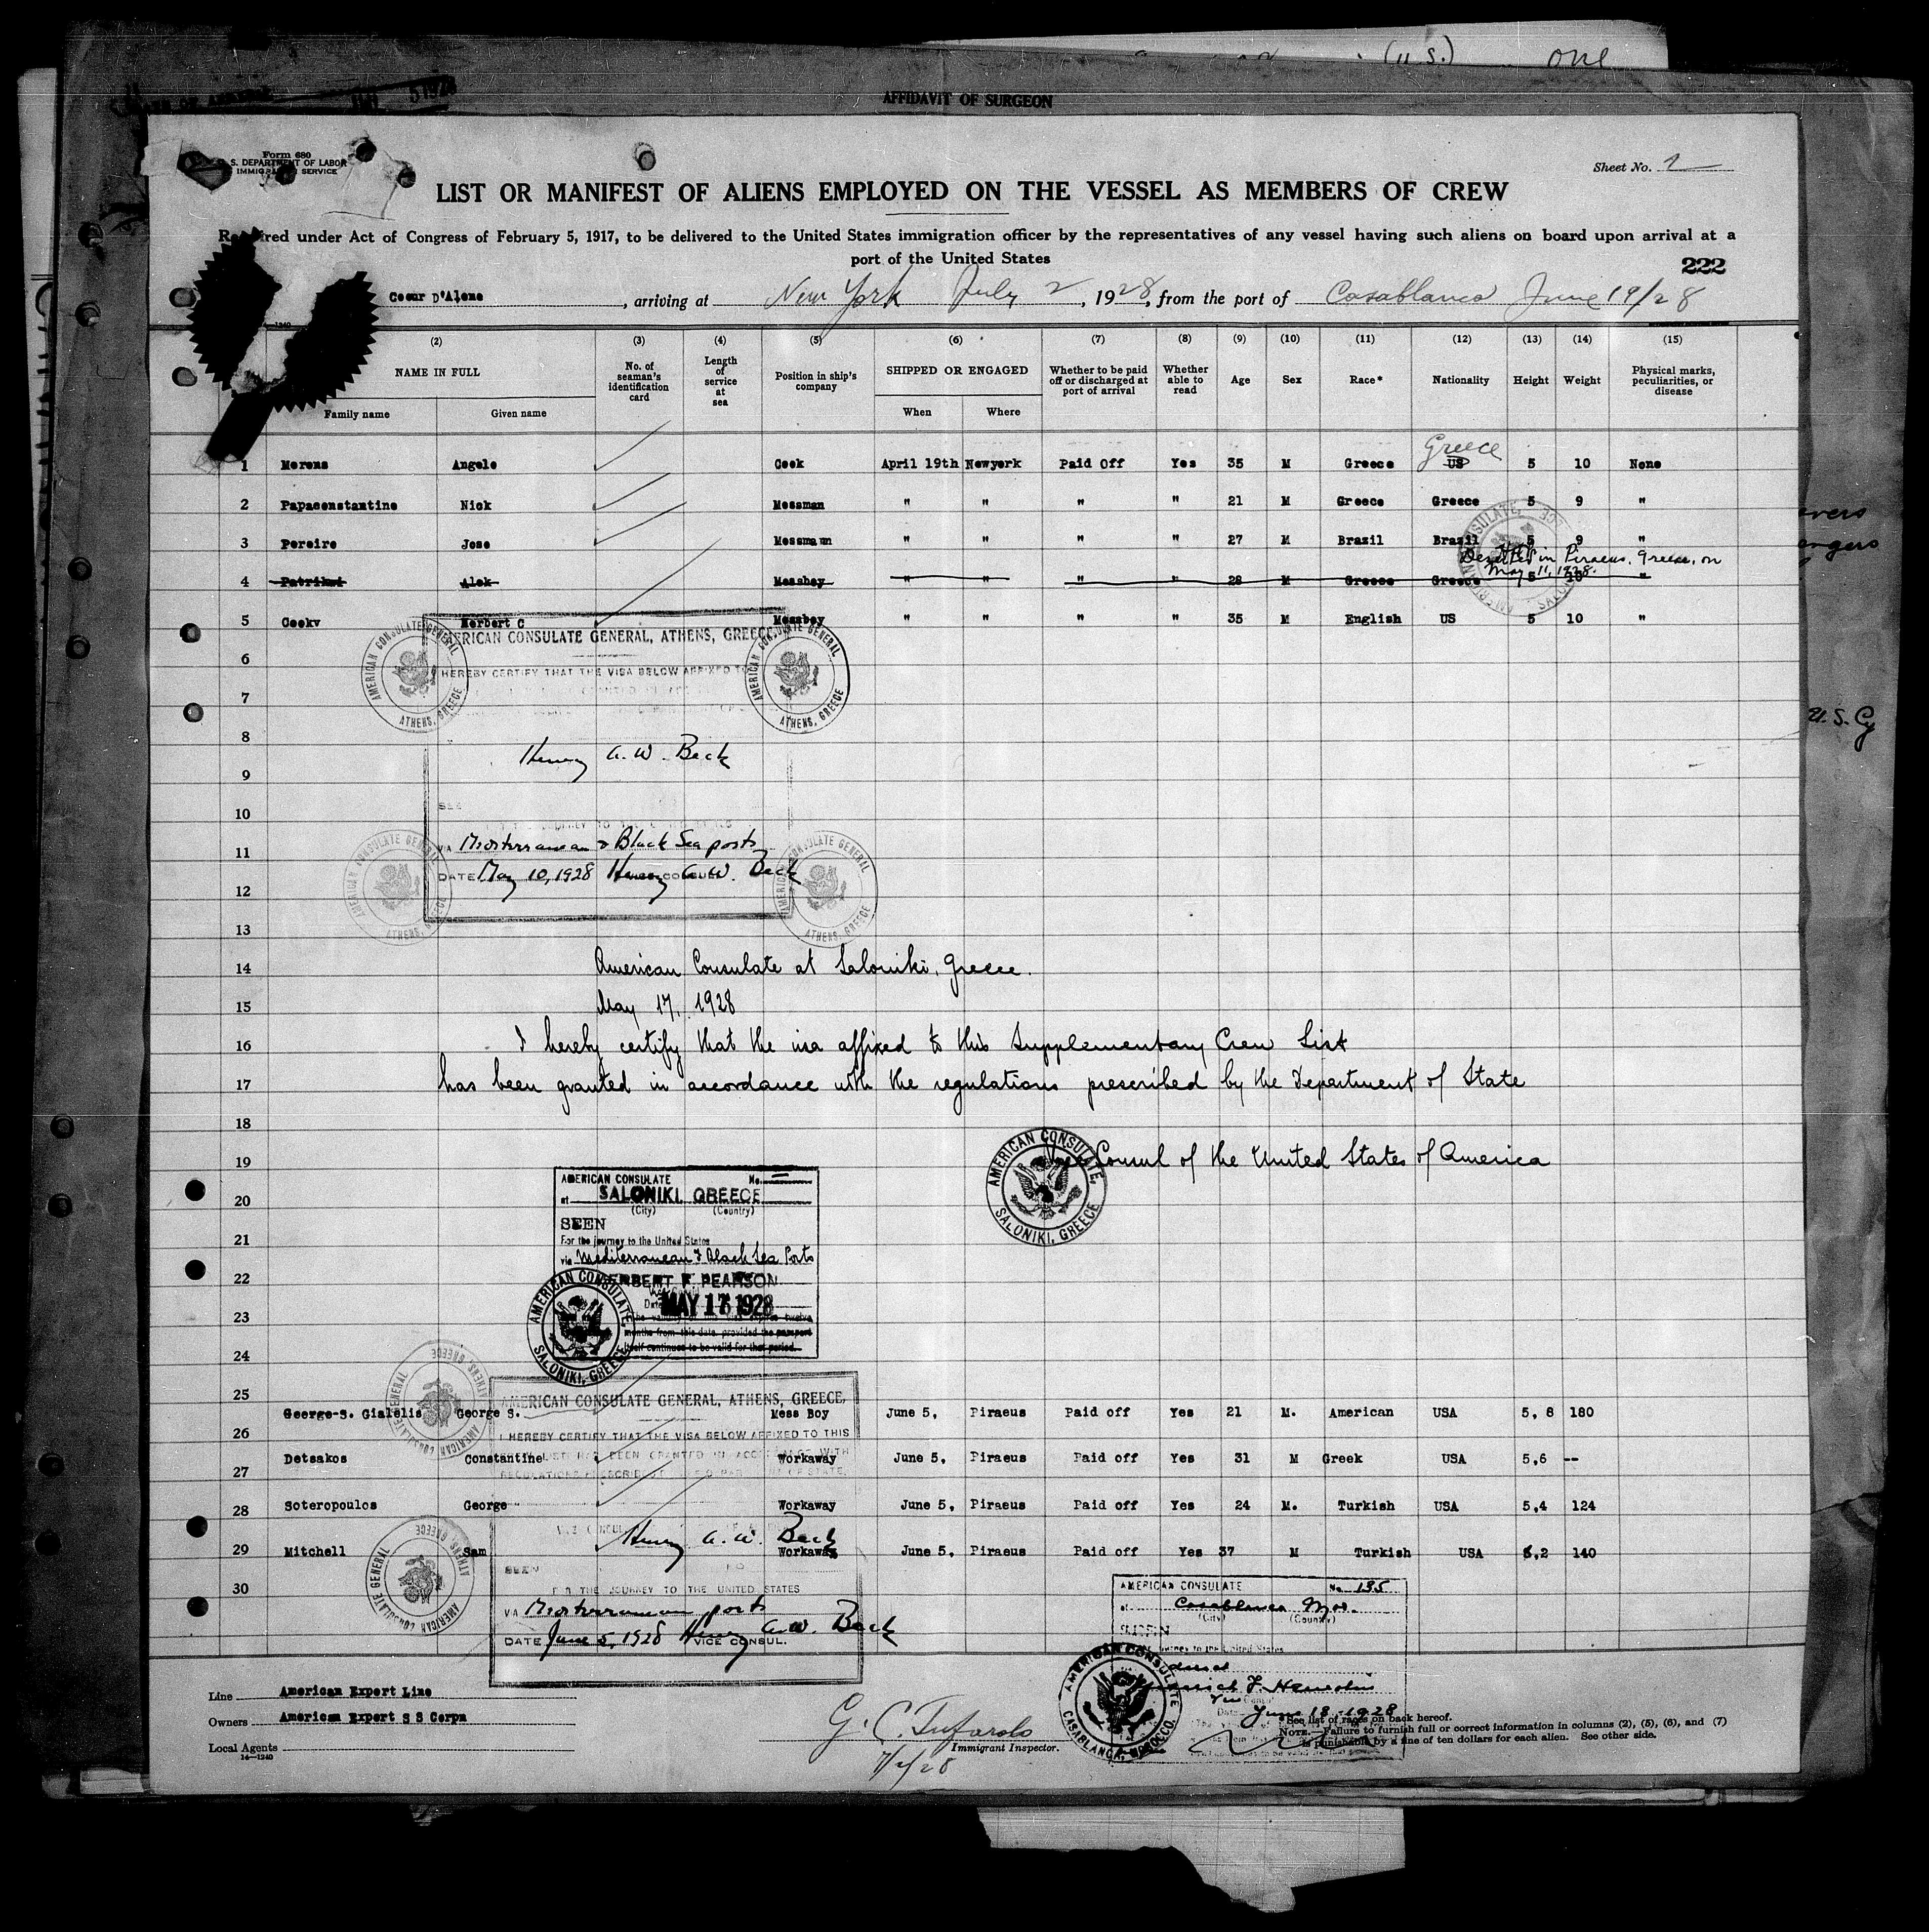 (U.S.) one
AFFIDAVIT OF SURGEON
Form 680
U. S. DEPARTMENT OF LABOR
IMMIGRATION SERVICE
Sheet No. 1
LIST OR MANIFEST OF ALIENS EMPLOYED ON THE VESSEL AS MEMBERS OF CREW
Required under Act of Congress of February 5, 1917, to be delivered to the United States immigration officer by the representatives of any vessel having such aliens on board upon arrival at a
port of the United States
222
Coeur D'Alene, arriving at New York July 2, 1928, from the port of Casablanca June 19/28
(2) (3) (4) (5) (6) (7) (8) (9) (10) (11) (12) (13) (14) (15)
NAME IN FULL No. of seaman's identification card Length of service at sea Position in ship's company SHIPPED OR ENGAGED Whether to be paid off or discharged at port of arrival Whether able to read Age Sex Race* Nationality Height Weight Physical marks, peculiarities, or disease
Family name Given name When Where
Greece
1 Morens Angelo Cook April 19th Newyork Paid Off Yes 35 M Greece US 5 10 None
2 Papaconstantine Nick Messman " " " " 21 M Greece Greece 5 9 "
3 Pereire Jose Messmann " " " " 27 M Brazil Brazil 5 9 "
Deserted in Piraeus, Greece, on
May 11, 1928.
4 Patrikwi Alek Messboy " " " " 28 M Greece Greece 5 10 "
5 Cookv Herbert C Messboy " " " " 35 M English US 5 10 "
AMERICAN CONSULATE GENERAL, ATHENS, GREECE
6
HEREBY CERTIFY THAT THE VISA BELOW AFFIXED
AMERICAN CONSULATE GENERAL ATHENS, GREECE
AMERICAN CONSULATE GENERAL ATHENS, GREECE
U.S. Cy
7
8
Henry A. W. Beck
9
10
SEEN
11
VIA Mediterranean & Black Sea ports
DATE May 10, 1928 Henry A. W. Beck
12
13
14 American Consulate at Saloniki, Greece.
15 May 17, 1928
16 I hereby certify that the visa affixed to this Supplementary Crew List
17 has been granted in accordance with the regulations prescribed by the Department of State
18
19 Vice Consul of the United States of America
AMERICAN CONSULATE, SALONIKI, GREECE
AMERICAN CONSULATE No.
at SALONIKI, GREECE
(City) (Country)
20
SEEN
21
For the journey to the United States
via Mediterranean & Black Sea Ports
22
HERBERT F. PEARSON
Date MAY 17 1928
23
months from this date, provided the passport
itself continues to be valid for that period.
AMERICAN CONSULATE, SALONIKI, GREECE
24
25
AMERICAN CONSULATE GENERAL, ATHENS, GREECE,
George S. Gialelis George S. Mess Boy June 5, Piraeus Paid off Yes 21 M. American USA 5, 8 180
26
I HEREBY CERTIFY THAT THE VISA BELOW AFFIXED TO THIS
Detsakos Constantine Workaway June 5, Piraeus Paid off Yes 31 M Greek USA 5,6 --
27
28 Soteropoulos George Workaway June 5, Piraeus Paid off Yes 24 M. Turkish USA 5,4 124
Henry A. W. Beck
29 Mitchell Sam Workaway June 5, Piraeus Paid off Yes 37 M Turkish USA 5,2 140
SEEN
30
FOR THE JOURNEY TO THE UNITED STATES
VIA Mediterranean ports
DATE June 5, 1928 Henry A. W. Beck
VICE CONSUL.
AMERICAN CONSULATE No. 135
at Casablanca Mor.
(City) (Country)
SEEN
June 18-1928
AMERICAN CONSULATE CASABLANCA, MOROCCO.
Line American Export Line
Owners American Export S S Corpn
Local Agents
14—1240
G. C. Tufarolo
Immigrant Inspector.
7/2/28
*See list of races on back hereof.
NOTE.—Failure to furnish full or correct information in columns (2), (5), (6), and (7)
is punishable by a fine of ten dollars for each alien. See other side.